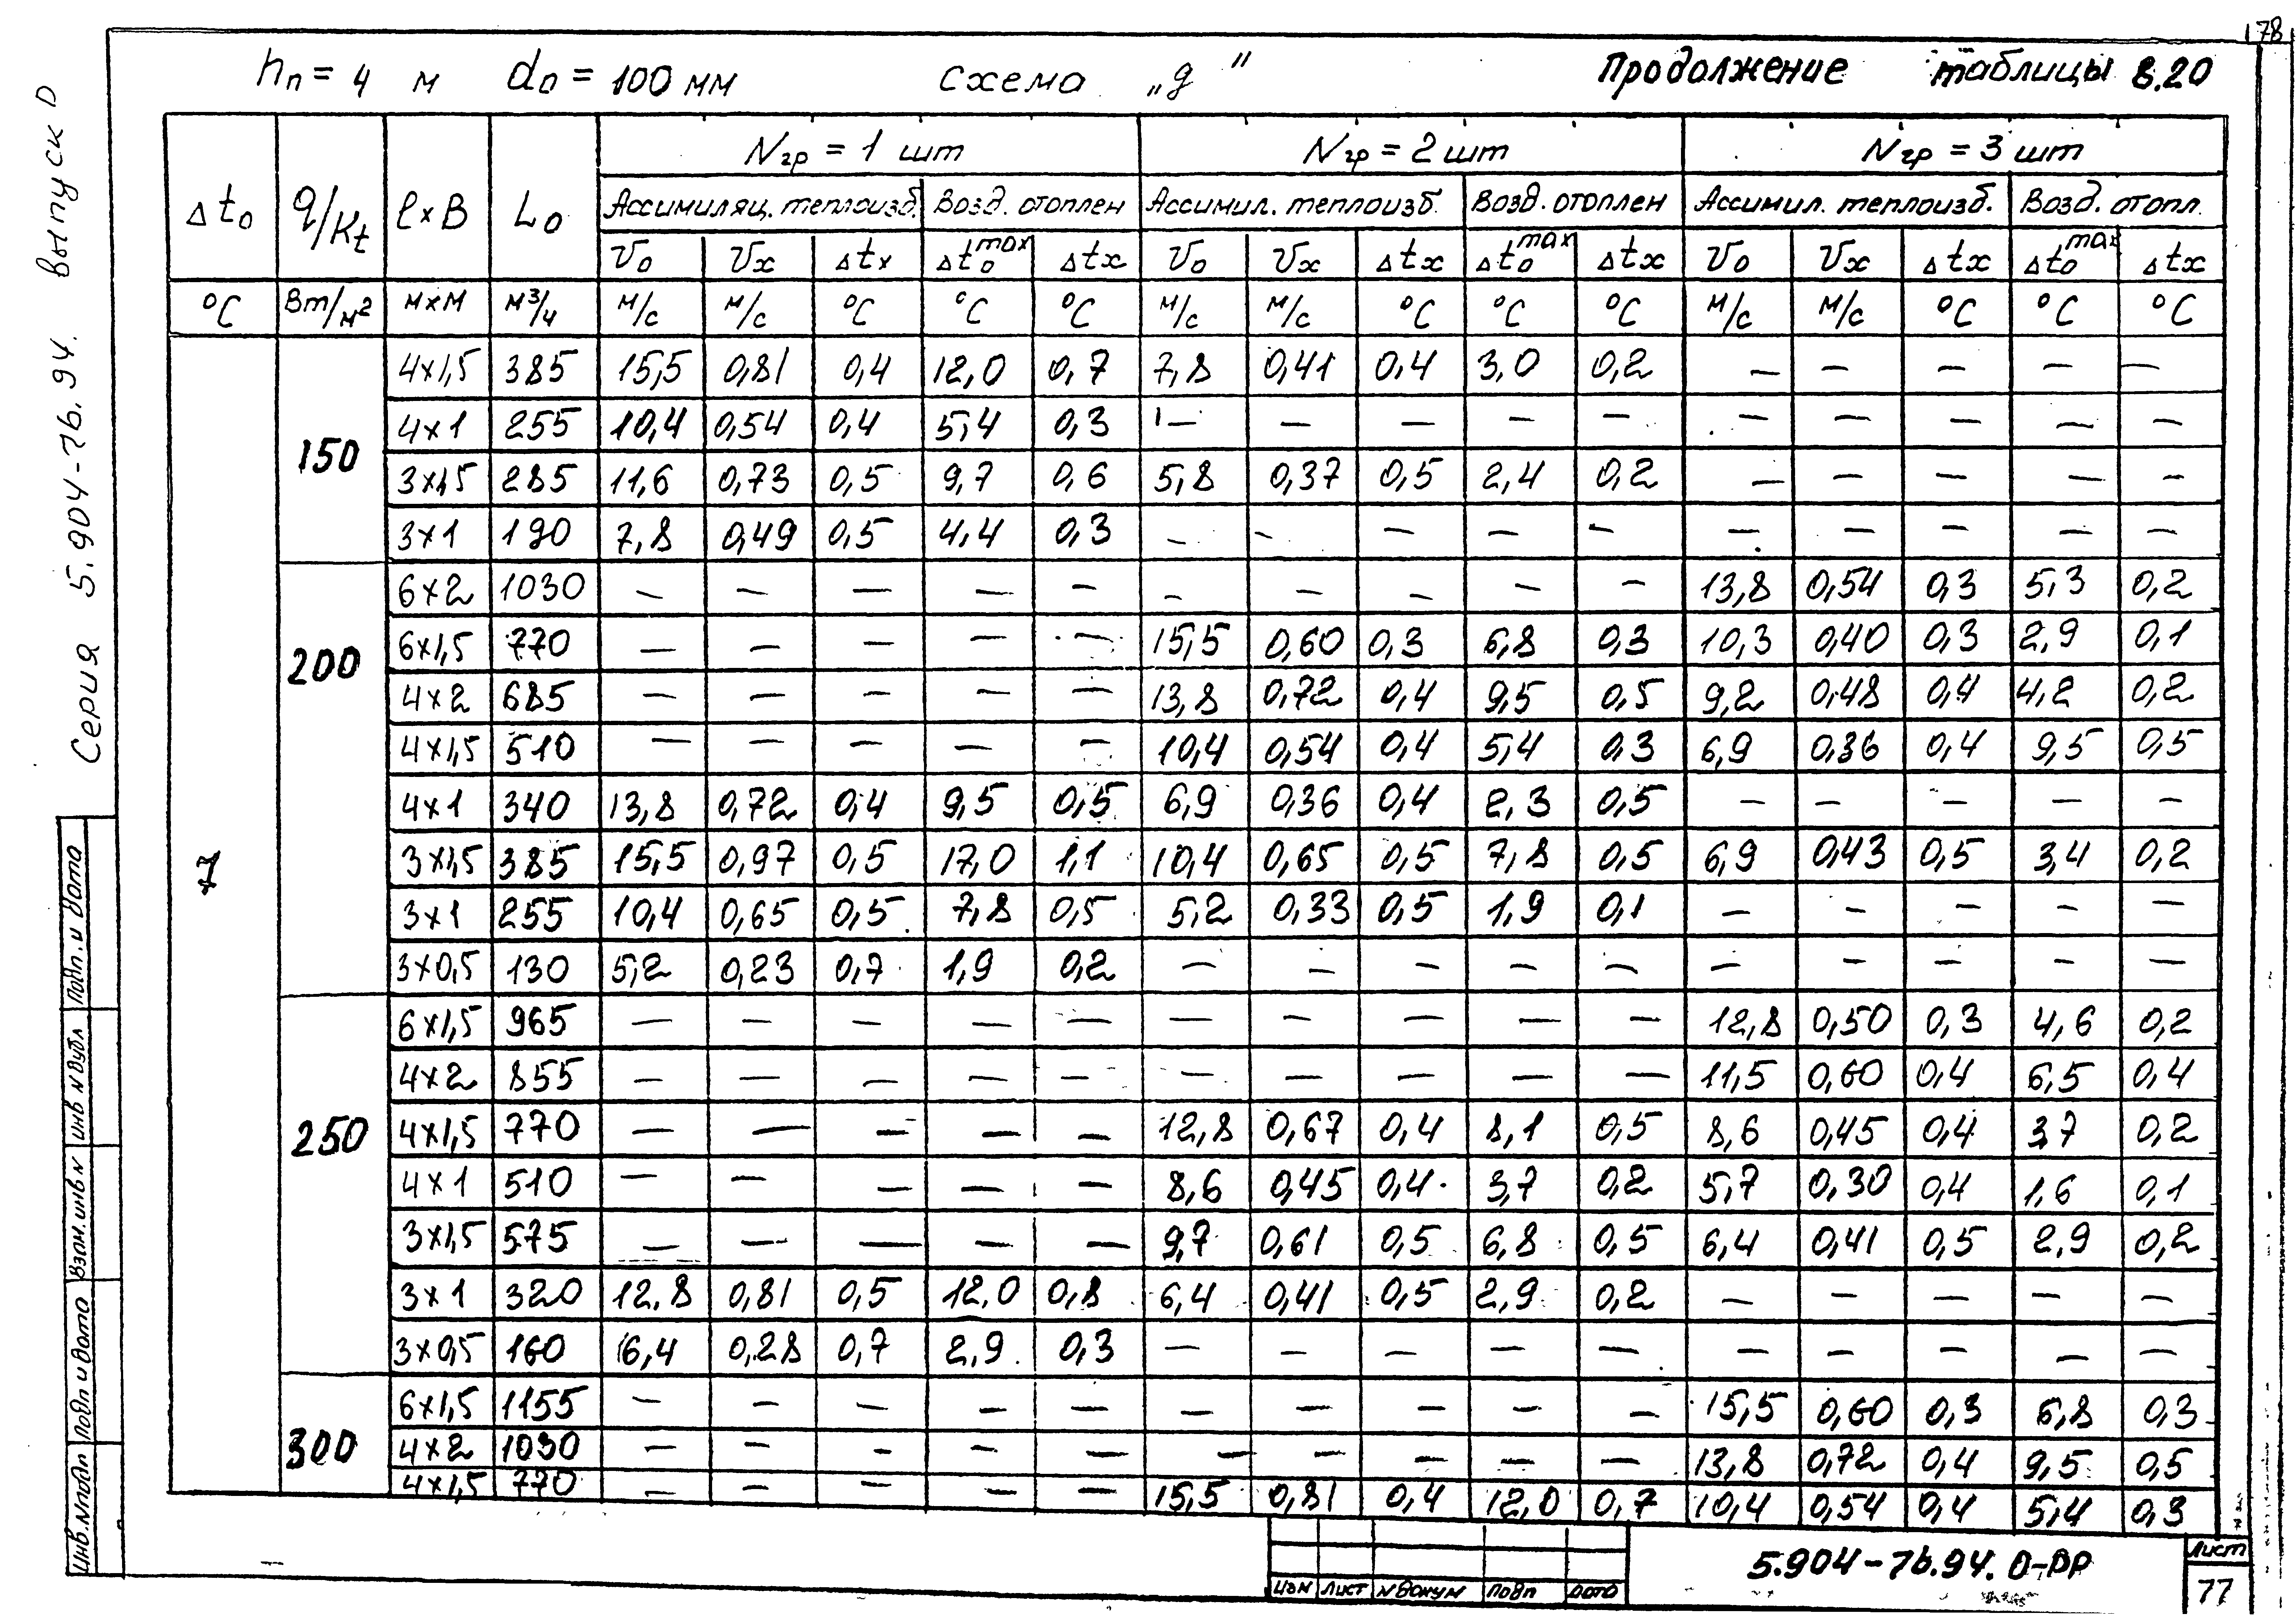 178
hп = 4 м dо = 100 мм схема „g" Продолжение таблицы 8.20
Nгр = 1 шт Nгр = 2 шт Nгр = 3 шт
Δto q/Kt l×B Lo Ассимиляц. теплоизб. Возд. отоплен Ассимил. теплоизб. Возд. отоплен Ассимил. теплоизб. Возд. отопл.
Vo Vx Δtx Δto max Δtx Vo Vx Δtx Δto max Δtx Vo Vx Δtx Δto max Δtx
°C Вт/м² м×м м³/ч м/с м/с °C °C °C м/с м/с °C °C °C м/с м/с °C °C °C
7
150
4×1,5 385 15,5 0,81 0,4 12,0 0,7 7,8 0,41 0,4 3,0 0,2 — — — — —
4×1 255 10,4 0,54 0,4 5,4 0,3 — — — — — — — — — —
3×1,5 285 11,6 0,73 0,5 9,7 0,6 5,8 0,37 0,5 2,4 0,2 — — — — —
3×1 190 7,8 0,49 0,5 4,4 0,3 — — — — — — — — — —
200
6×2 1030 — — — — — — — — — — 13,8 0,54 0,3 5,3 0,2
6×1,5 770 — — — — — 15,5 0,60 0,3 6,8 0,3 10,3 0,40 0,3 2,9 0,1
4×2 685 — — — — — 13,8 0,72 0,4 9,5 0,5 9,2 0,48 0,4 4,2 0,2
4×1,5 510 — — — — — 10,4 0,54 0,4 5,4 0,3 6,9 0,36 0,4 9,5 0,5
4×1 340 13,8 0,72 0,4 9,5 0,5 6,9 0,36 0,4 2,3 0,5 — — — — —
3×1,5 385 15,5 0,97 0,5 17,0 1,1 10,4 0,65 0,5 7,8 0,5 6,9 0,43 0,5 3,4 0,2
3×1 255 10,4 0,65 0,5 7,8 0,5 5,2 0,33 0,5 1,9 0,1 — — — — —
3×0,5 130 5,2 0,23 0,7 1,9 0,2 — — — — — — — — — —
250
6×1,5 965 — — — — — — — — — — 12,8 0,50 0,3 4,6 0,2
4×2 855 — — — — — — — — — — 11,5 0,60 0,4 6,5 0,4
4×1,5 770 — — — — — 12,8 0,67 0,4 8,1 0,5 8,6 0,45 0,4 3,7 0,2
4×1 510 — — — — — 8,6 0,45 0,4 3,7 0,2 5,7 0,30 0,4 1,6 0,1
3×1,5 575 — — — — — 9,7 0,61 0,5 6,8 0,5 6,4 0,41 0,5 2,9 0,2
3×1 320 12,8 0,81 0,5 12,0 0,8 6,4 0,41 0,5 2,9 0,2 — — — — —
3×0,5 160 6,4 0,28 0,7 2,9 0,3 — — — — — — — — — —
300
6×1,5 1155 — — — — — — — — — — 15,5 0,60 0,3 6,8 0,3
4×2 1030 — — — — — — — — — — 13,8 0,72 0,4 9,5 0,5
4×1,5 770 — — — — — 15,5 0,81 0,4 12,0 0,7 10,4 0,54 0,4 5,4 0,3
Серия 5.904-76.94. выпуск 0
Подп. и дата
инв N дубл
Взам. инв N
Подп и дата
Инв. N подл
Изм Лист N докум Подп Дата
5.904-76.94. 0-РР
Лист
77